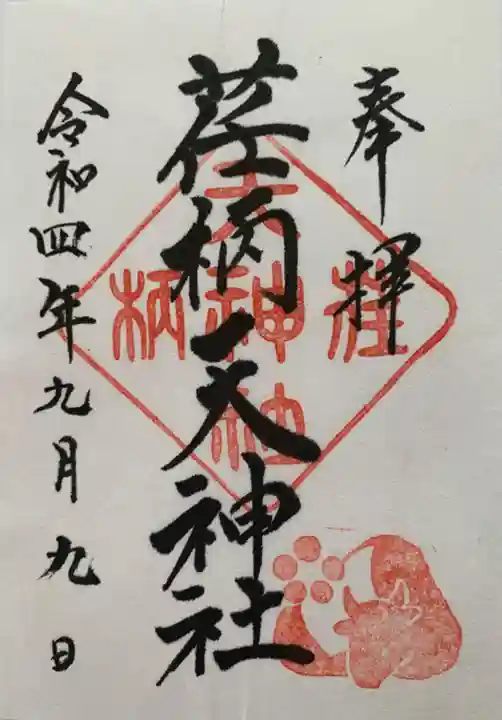 奉拝
荏柄天神社
荏柄天神社
令和四年九月九日